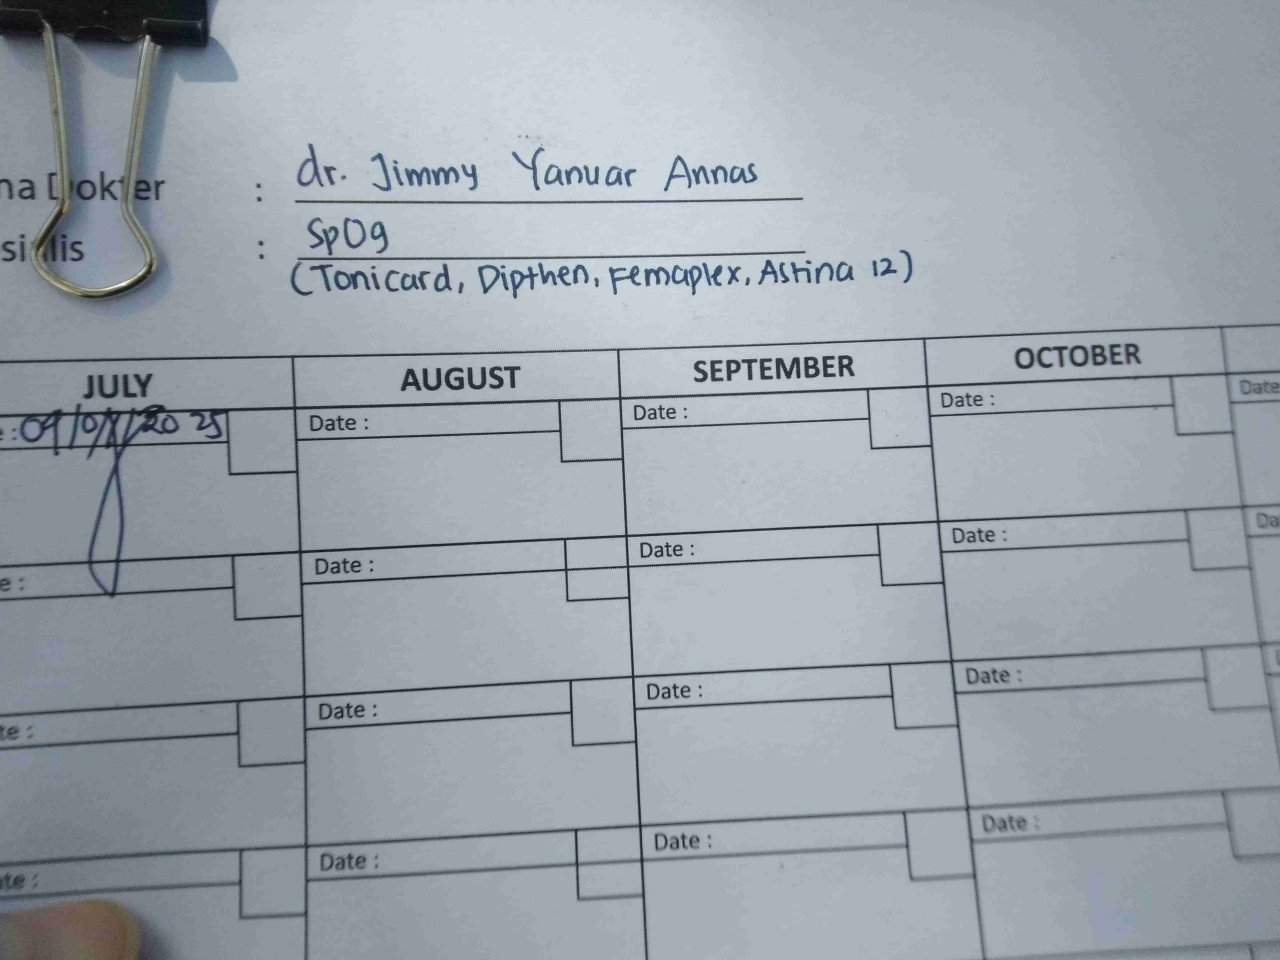 na Dokter : dr. Jimmy Yanuar Annas
sialis : SpOg
(Tonicard, Dipthen, Femaplex, Astina 12)
JULY AUGUST SEPTEMBER OCTOBER
e : 09/07/2025 Date : Date : Date : Date
e : Date : Date : Date : Da
te : Date : Date : Date :
te : Date : Date : Date :